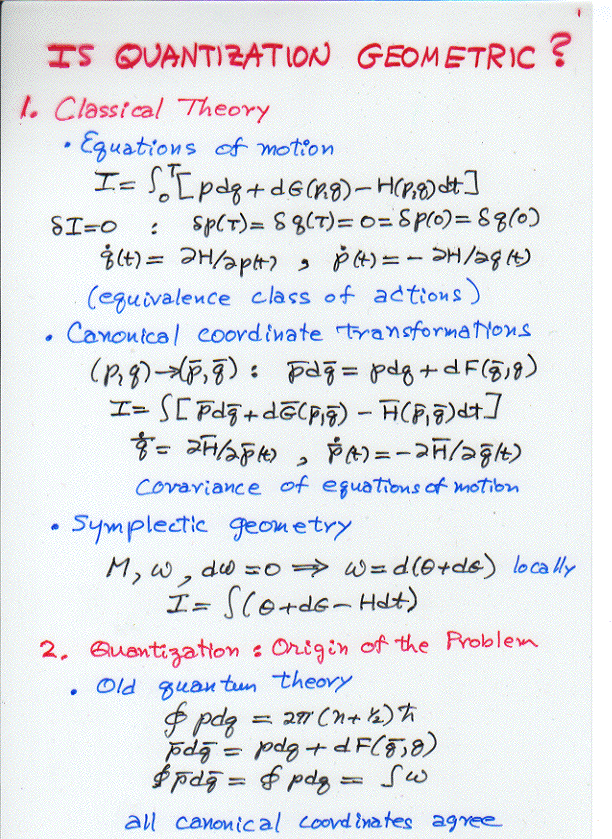 1
IS QUANTIZATION GEOMETRIC?
1. Classical Theory
• Equations of motion
I = ∫₀ᵀ [pdq + dG(p,q) − H(p,q)dt]
δI=0 : δp(T) = δq(T) = 0 = δp(0) = δq(0)
q̇(t) = ∂H/∂p(t) , ṗ(t) = − ∂H/∂q(t)
(equivalence class of actions)
• Canonical coordinate transformations
(p,q)→(p̄,q̄) : p̄dq̄ = pdq + dF(q̄,q)
I = ∫[p̄dq̄ + dḠ(p̄,q̄) − H̄(p̄,q̄)dt]
q̄̇ = ∂H̄/∂p̄(t) , p̄̇(t) = −∂H̄/∂q̄(t)
Covariance of equations of motion
• Symplectic geometry
M, ω, dω = 0 ⟹ ω = d(θ+dG) locally
I = ∫(θ+dG − Hdt)
2. Quantization : Origin of the Problem
• Old quantum theory
∮ pdq = 2π(n+½)ħ
p̄dq̄ = pdq + dF(q̄,q)
∮p̄dq̄ = ∮ pdq = ∫ω
all canonical coordinates agree